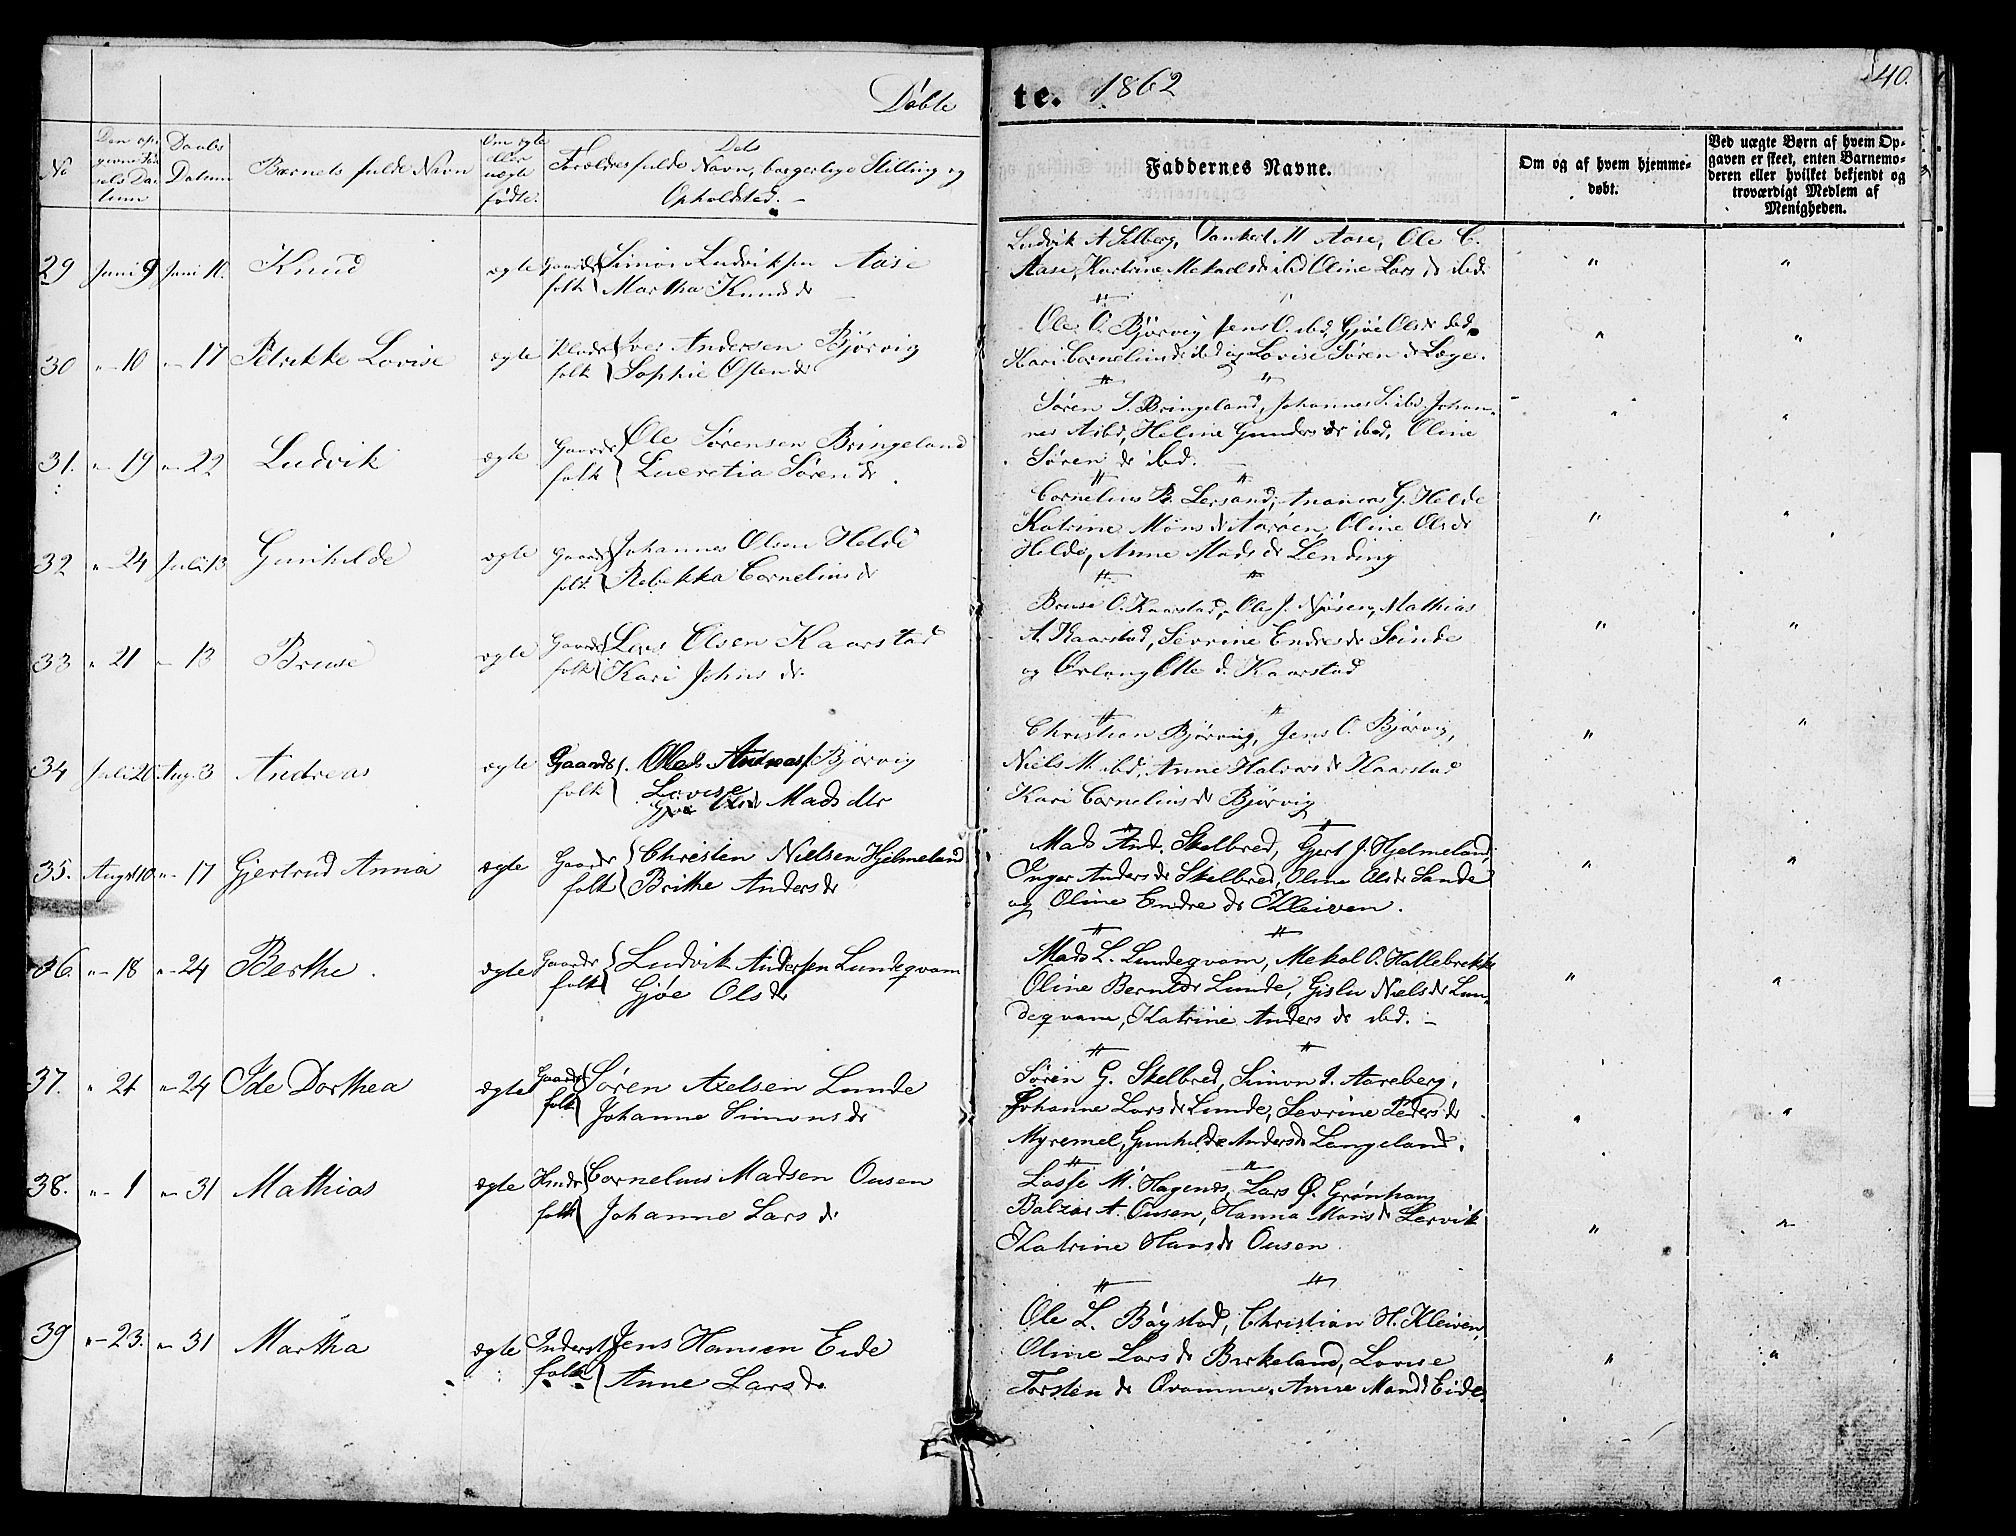 Døbte
te. 1862
40.
No
Den op-
givne Fød-
sels Da-
tum
Daabs
Datum
Barnets fulde Navn
Om ægte
eller
uægte
fødte.
Forældres fulde Navn, borgerlige Stilling og
Opholdsted.
Faddernes Navne.
Om og af hvem hjemme-
døbt.
Ved uægte Børn af hvem Op-
gaven er skeet, enten Barnemo-
deren eller hvilket bekjendt og
troværdigt Medlem af
Menigheden.
29 Juni 9 Juni 11. Knud ægte Gaardr Simon Ludviksen Aase
folk Martha Knuds dr
Ludvik A Solberg, Tankert M Aase, Ole C.
Aase, Katrine Mekals dr ibd Oline Lars dr ibd.
30 " 10 " 17 Petrikke Lovise ægte Iver Andersen Bjørvig
folk Sophie Østen dr
Ole O. Bjørvig Jens O. ibd, Gjøe Ols dr ibd,
Kari Cornelius dr ibd og Lovise Søren dr Læge.
31. " 19 " 22 Ludvik ægte Gaardr Ole Sørensen Bringeland
folk Lucretia Søren dr
Søren S. Bringeland, Johannes S. ibd, Johan-
nes A ibd, Heline Gunders dr ibd, Oline
Søren dr ibd.
32 " 24 Juli 13 Gunhilde ægte Gaardr Johannes Olsen Helde
folk Rebekka Cornelius dr
Cornelius R. Lersand, Ananias G. Helde
Katrine Mons dr Aarøen, Oline Ols dr
Helde, Anne Mads dr Lending
33 " 21 " 13 Bruse ægte Gaardr Lars Olsen Kaarstad
folk Kari Johns dr.
Bruse O. Kaarstad, Ole J. Njøsen, Mathias
A. Kaarstad, Sevrine Endre dr Svinde
og Ørlaug Olle d. Kaarstad
34 Juli 20. Aug. 3 Andreas ægte Gaards Ole Andreas Bjørvig
folk Lovise
Mads dtr
Christian Bjørvig, Jens O. Bjørvig,
Niels M. ibd, Anne Halvors dr Kaarstad
Kari Cornelius dr Bjørvig
35. August 10. " 17 Gjertrud Anna ægte Gaardr Christen Nielsen Hjelmeland
folk Brithe Anders dr
Mads And. Skelbred, Gjert J. Hjelmeland,
Inger Anders dr Skelbred, Oline Ols dr Sande
og Oline Endre dr Kleiven.
36 " 18 " 24 Berthe. ægte Gaardr Ludvik Andersen Lundeqvam
folk Gjøe Ols dr
Mads L. Lundeqvam, Mekal O. Hallebrekke
Oline Bernts dr Lunde, Gislu Niels dr Lun-
deqvam, Katrine Anders dr ibd.
37. " 21 " 24 Ide Dorthea ægte Gaardr Søren Axelsen Lunde
folk Johanne Simons dr
Søren G. Skelbred, Simon I. Aareberg,
Johanne Lars dr Lunde, Sevrine Peders dr
Myremel, Gunhilde Anders dr Langeland.
38. " 1 " 31 Mathias ægte Cornelius Madsen Ousen
folk Johanne Lars dr
Lasse M. Hagenes, Lars O. Grønhaug
Balzar A. Ousen, Hanna Mons dr Lervik
Katrine Hans dr Ousen
39 " 23. " 31 Martha ægte Inderst Jens Hansen Eide
folk Anne Lars dr
Ole L. Bøystad, Christian H. Kleiven,
Oline Lars dr Birkeland, Lovise
Torsten dr Qvamme, Anne Mons d Eide.